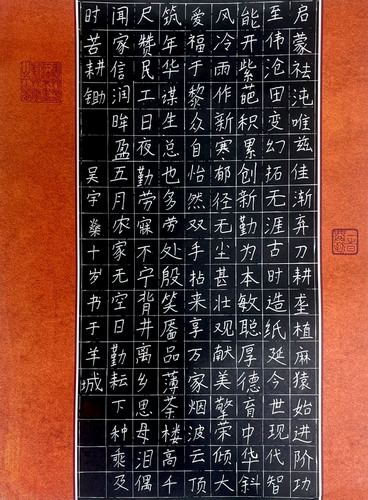 启蒙祛沌唯兹佳渐弃刀耕垄植麻猿始进阶功
至伟沧田变幻拓无涯古时造纸延今世现代智
能开紫葩积累创新勤为本敏聪厚德育中华斜
风冷雨作新寒郁径无尘甚壮观献美擎荣倾大
爱福于黎众自怡然双手拈来享万家烟波云顶
筑年华谋生总也多劳处殷笑靥品薄茶楼高千
尺赞民工日夜勤劳寐不宁背井离乡思母泪偶
闻家信润眸盈五月农家无空日勤耘下种乘及
时苦耕锄 吴宇燊十岁书于羊城